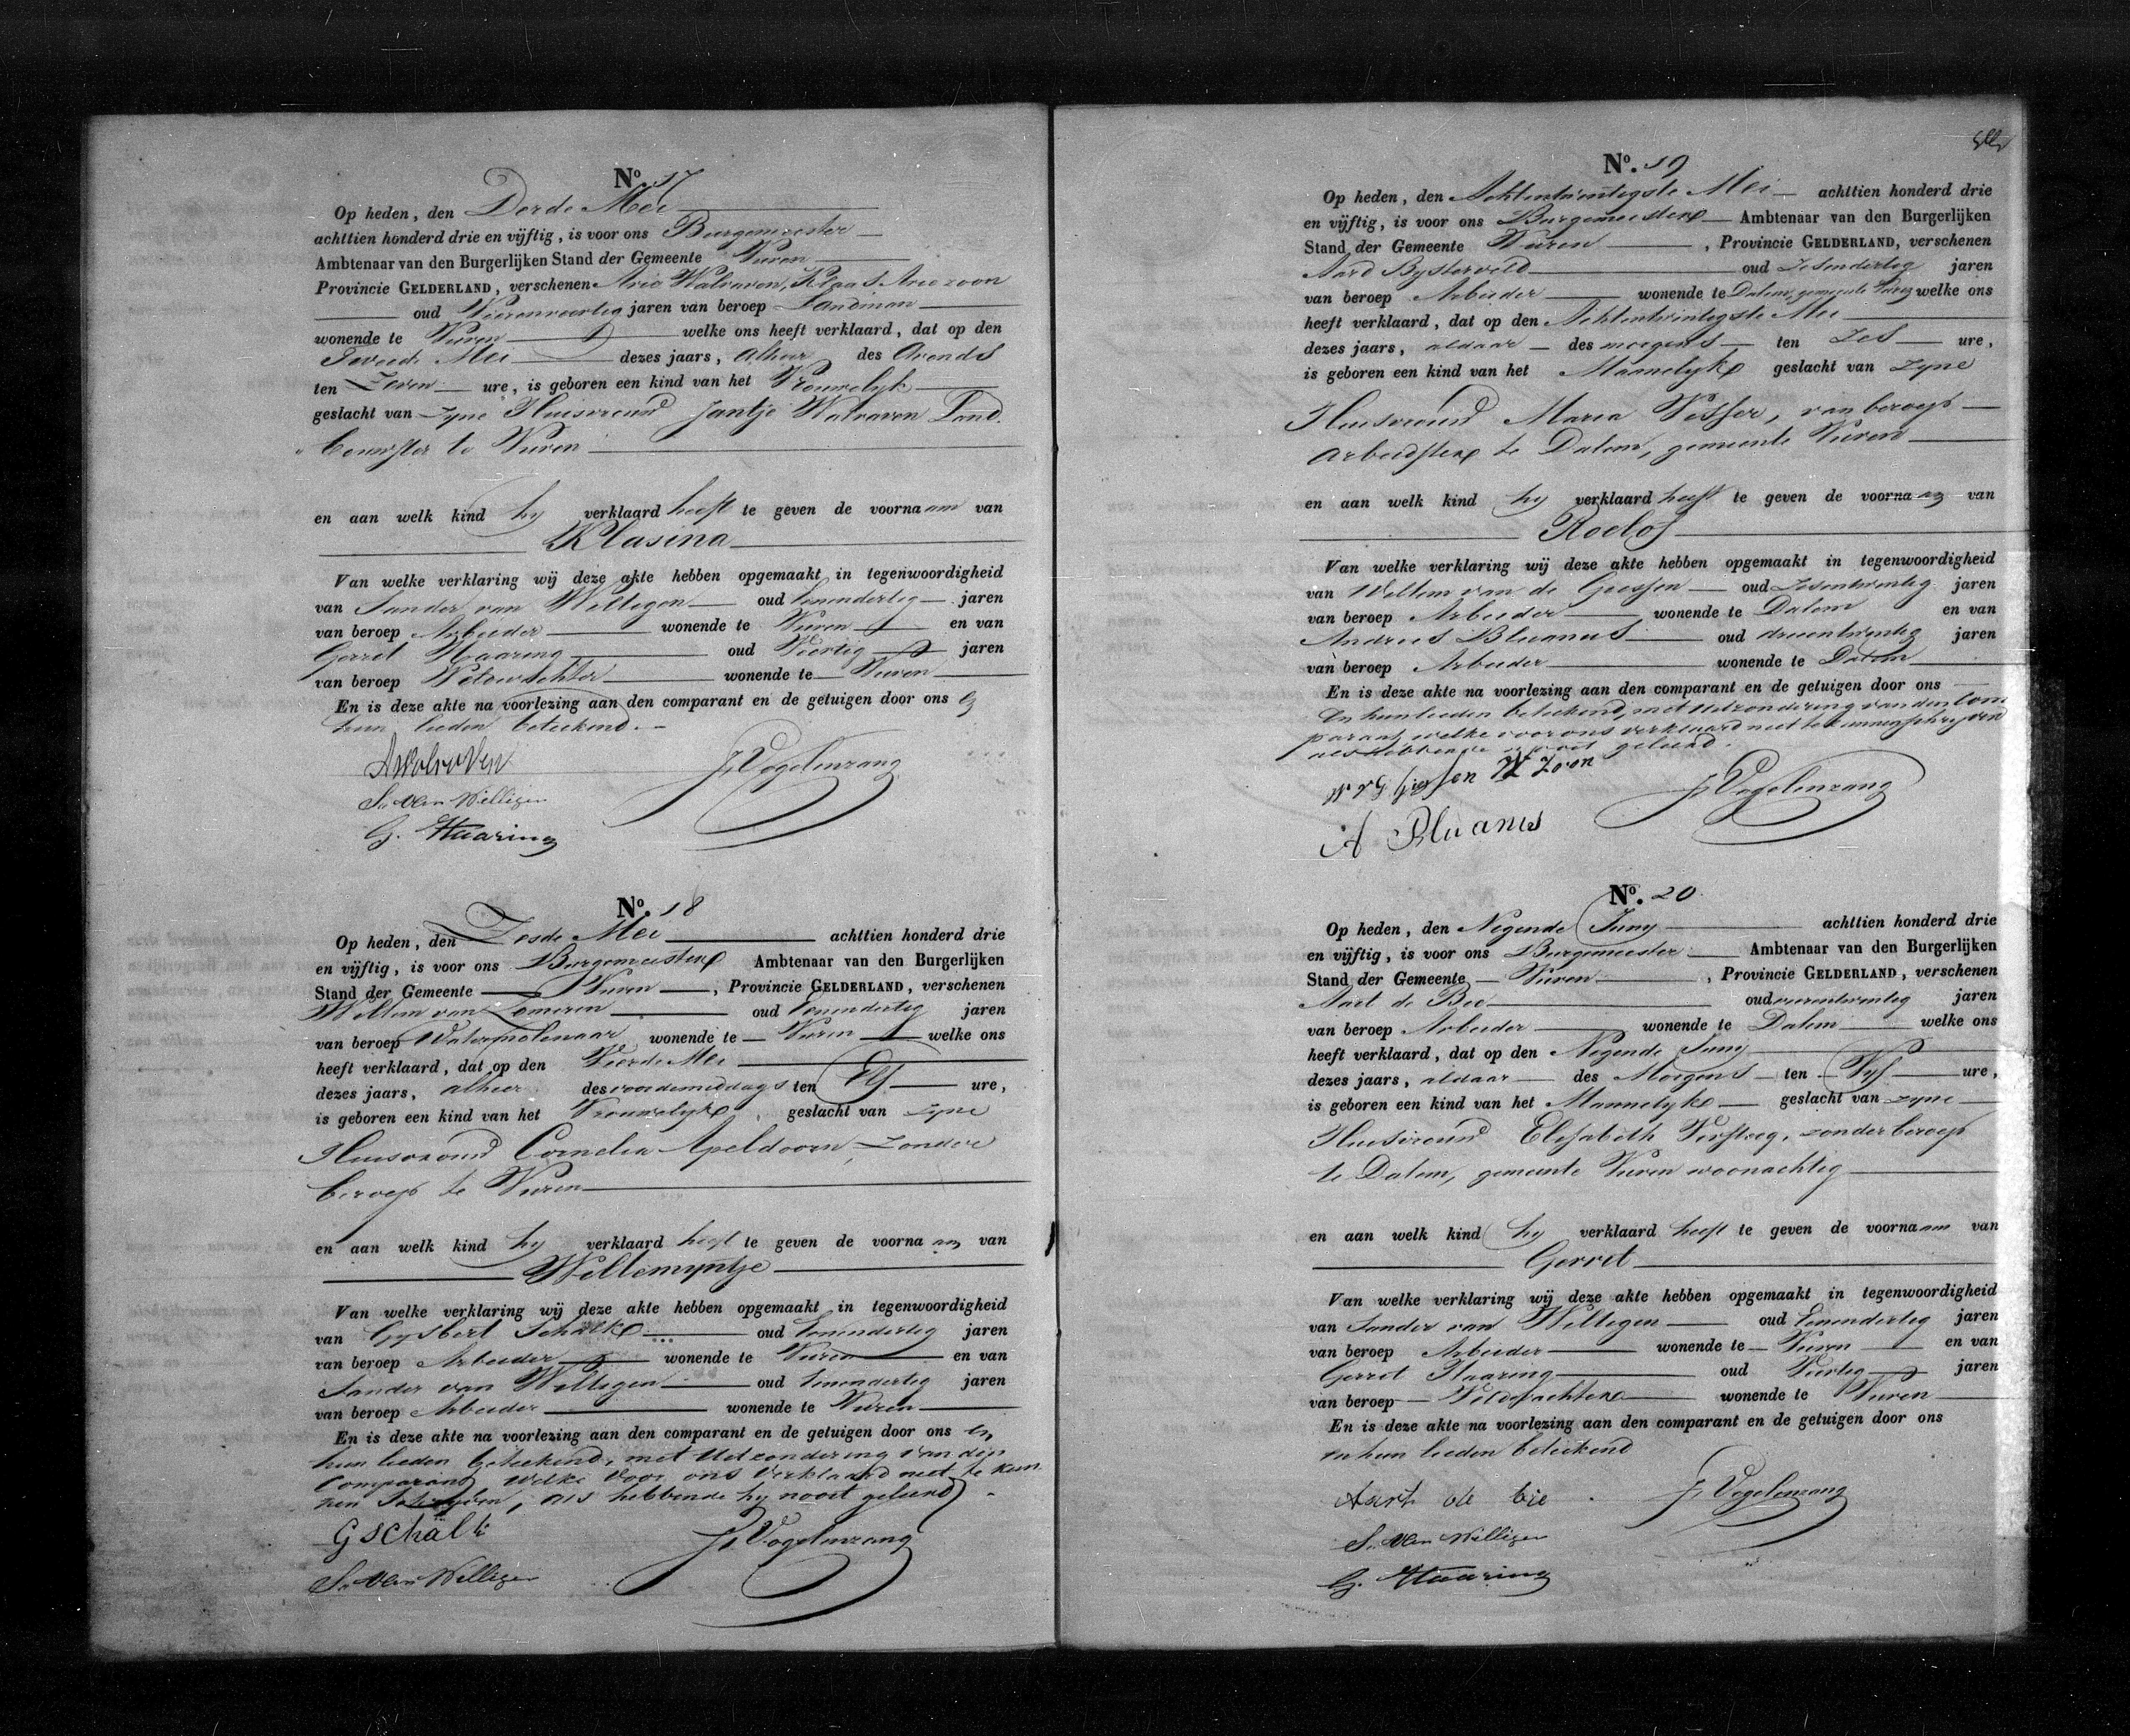 No. 17
Op heden, den Derde Mei
achttien honderd drie en vijftig, is voor ons Burgemeester
Ambtenaar van den Burgerlijken Stand der Gemeente Vuren
Provincie GELDERLAND, verschenen Arie Walraven, Klaas Ariezoon
oud Vierenveertig jaren van beroep Landman
wonende te Vuren welke ons heeft verklaard, dat op den
Tweede Mei dezes jaars, alhier des Avonds
ten Zeven ure, is geboren een kind van het Vrouwelyk
geslacht van zyne Huisvrouw Jantje Walraven Land
bouwster te Vuren
en aan welk kind hy verklaard heeft te geven de voornaam van
Klasina
Van welke verklaring wij deze akte hebben opgemaakt in tegenwoordigheid
van Sander van Willigen oud Eenendertig jaren
van beroep Arbeider wonende te Vuren en van
Gerret Haaring oud Veertig jaren
van beroep Veldwachter wonende te Vuren
En is deze akte na voorlezing aan den comparant en de getuigen door ons en
hun lieden geteekend.
AWalraven
S. van Willigen
G. Haaring
J. Vogelenzang
No. 18
Op heden, den Zesde Mei achttien honderd drie
en vijftig, is voor ons Burgemeester Ambtenaar van den Burgerlijken
Stand der Gemeente Vuren, Provincie GELDERLAND, verschenen
Willem van Zomeren oud Eenendertig jaren
van beroep Watermolenaar wonende te Vuren welke ons
heeft verklaard, dat op den Vierde Mei
dezes jaars, alhier des voordemiddags ten Elf ure,
is geboren een kind van het Vrouwelyke geslacht van zyne
Huisvrouw Cornelia Apeldoorn, zonder
beroep te Vuren
en aan welk kind hy verklaard heeft te geven de voornaam van
Willemyntje
Van welke verklaring wij deze akte hebben opgemaakt in tegenwoordigheid
van Gysbert Schalke oud Eenendertig jaren
van beroep Arbeider wonende te Vuren en van
Sander van Willigen oud Eenendertig jaren
van beroep Arbeider wonende te Vuren
En is deze akte na voorlezing aan den comparant en de getuigen door ons en
hun lieden geteekend, met uitzondering van den
Comparant welke voor ons verklaard niet te kun
nen Schryven, als hebbende hy nooit geleerd.
G schalk
S. van Willigen
J. Vogelenzang
No. 19
Op heden, den Achtentwintigste Mei achttien honderd drie
en vijftig, is voor ons Burgemeester Ambtenaar van den Burgerlijken
Stand der Gemeente Vuren, Provincie GELDERLAND, verschenen
Aard Bysterveld oud Zesendertig jaren
van beroep Arbeider wonende te Dalem, gemeente Vuren welke ons
heeft verklaard, dat op den Achtentwintigste Mei
dezes jaars, aldaar des morgens ten Zes ure,
is geboren een kind van het Mannelyke geslacht van zyne
Huisvrouw Maria Visser, van beroep
arbeidster te Dalem, gemeente Vuren
en aan welk kind hy verklaard heeft te geven de voornaam van
Roelof
Van welke verklaring wij deze akte hebben opgemaakt in tegenwoordigheid
van Willem van de Giessen oud Zesentwintig jaren
van beroep Arbeider wonende te Dalem en van
Andries Bluanus oud drieentwintig jaren
van beroep Arbeider wonende te Dalem
En is deze akte na voorlezing aan den comparant en de getuigen door ons
en hun lieden geteekend, met uitzondering van den Com
parant welke voor ons verklaard niet te kunnen schryven
als hebbende nooit geleerd.
W v G giessen W Zoon
A Bluanus
J. Vogelenzang
No. 20
Op heden, den Negende Juny achttien honderd drie
en vijftig, is voor ons Burgemeester Ambtenaar van den Burgerlijken
Stand der Gemeente Vuren, Provincie GELDERLAND, verschenen
Aart de Bie oud vierentwintig jaren
van beroep Arbeider wonende te Dalem welke ons
heeft verklaard, dat op den Negende Juny
dezes jaars, aldaar des Morgens ten Vyf ure,
is geboren een kind van het Mannelyke geslacht van zyne
Huisvrouw Elisabeth Versteeg, zonder beroep
te Dalem, gemeente Vuren woonachtig
en aan welk kind hy verklaard heeft te geven de voornaam van
Gerret
Van welke verklaring wij deze akte hebben opgemaakt in tegenwoordigheid
van Sander van Willigen oud Eenendertig jaren
van beroep Arbeider wonende te Vuren en van
Gerret Haaring oud Veertig jaren
van beroep Veldwachter wonende te Vuren
En is deze akte na voorlezing aan den comparant en de getuigen door ons
en hun lieden geteekend
Aart de bie
S. van Willigen
G. Haaring
J. Vogelenzang